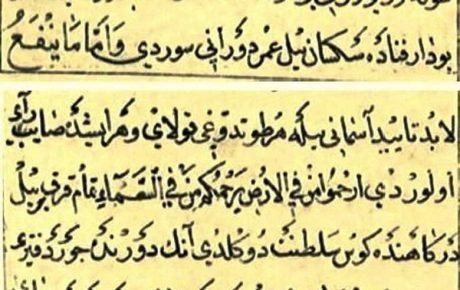 بو دار فناده سكسان ييل عمر دوراني سوردي وَاَمَّا مَا يَنْفَعُ
لابد تاييد آسماني بيله هر طوتدوغي قولاي و هر ايشده صايب رأي
اولوردي ارحموا من في الارض يرحمكم من في السماء تمام قرق بر ييل
دركاهنده كوس سلطنت دوكلدي آنك دورنده جور دفتري